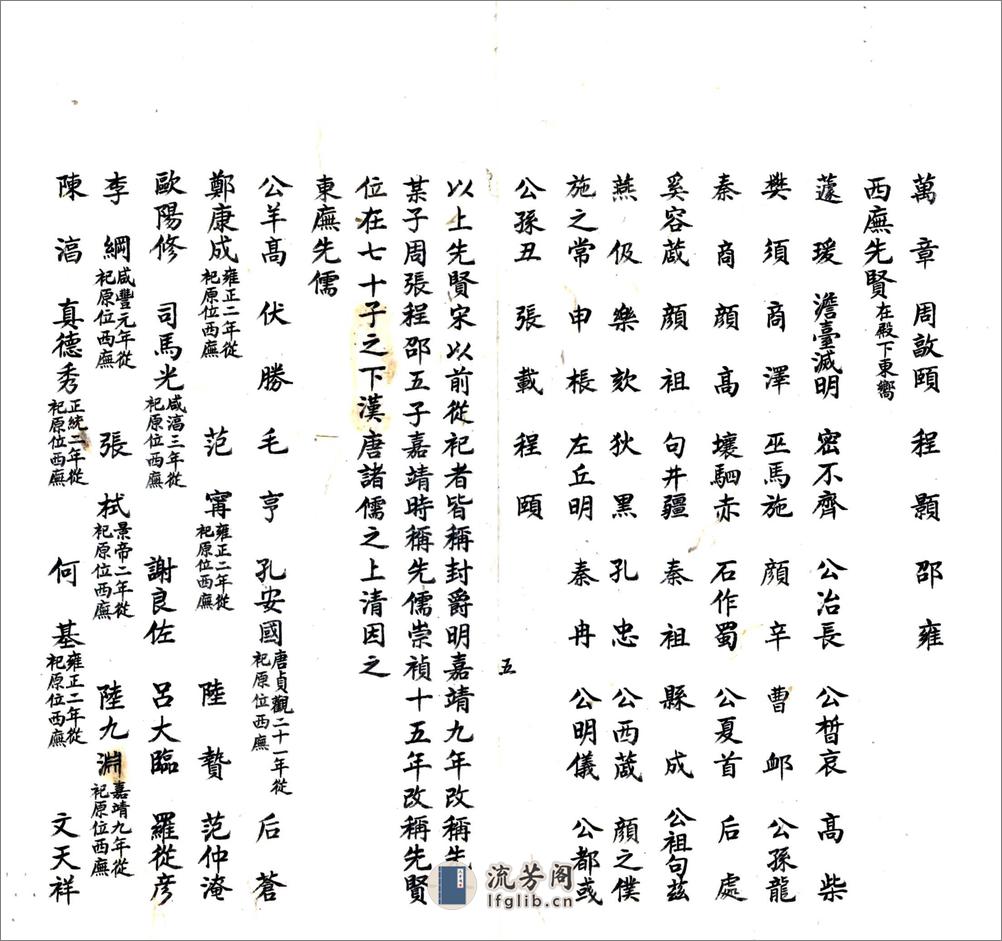 萬章 周敦頤 程顥 邵雍
西廡先賢在殿下東嚮
蘧瑗 澹臺滅明 宓不齊 公冶長 公晳哀 高柴
樊須 商澤 巫馬施 顏辛 曹卹 公孫龍
秦商 顏高 壤駟赤 石作蜀 公夏首 后處
奚容蒧 顏祖 句井疆 秦祖 縣成 公祖句茲
燕伋 樂欬 狄黑 孔忠 公西蒧 顏之僕
施之常 申棖 左丘明 秦冉 公明儀 公都或
公孫丑 張載 程頤
五
以上先賢宋以前從祀者皆稱封爵明嘉靖九年改稱先
某子周張程邵五子嘉靖時稱先儒崇禎十五年改稱先賢
位在七十子之下漢唐諸儒之上清因之
東廡先儒
公羊高 伏勝 毛亨 孔安國唐貞觀二十一年從祀原位西廡 后蒼
鄭康成雍正二年從祀原位西廡 范甯雍正二年從祀原位西廡 陸贄 范仲淹
歐陽修 司馬光咸淳三年從祀原位西廡 謝良佐 呂大臨 羅從彥
李綱咸豐元年從祀原位西廡 張栻景帝二年從祀原位西廡 陸九淵嘉靖九年從祀原位西廡
陳淳 真德秀正統二年從祀原位西廡 何基雍正二年從祀原位西廡 文天祥
流芳阁
lfglib.cn